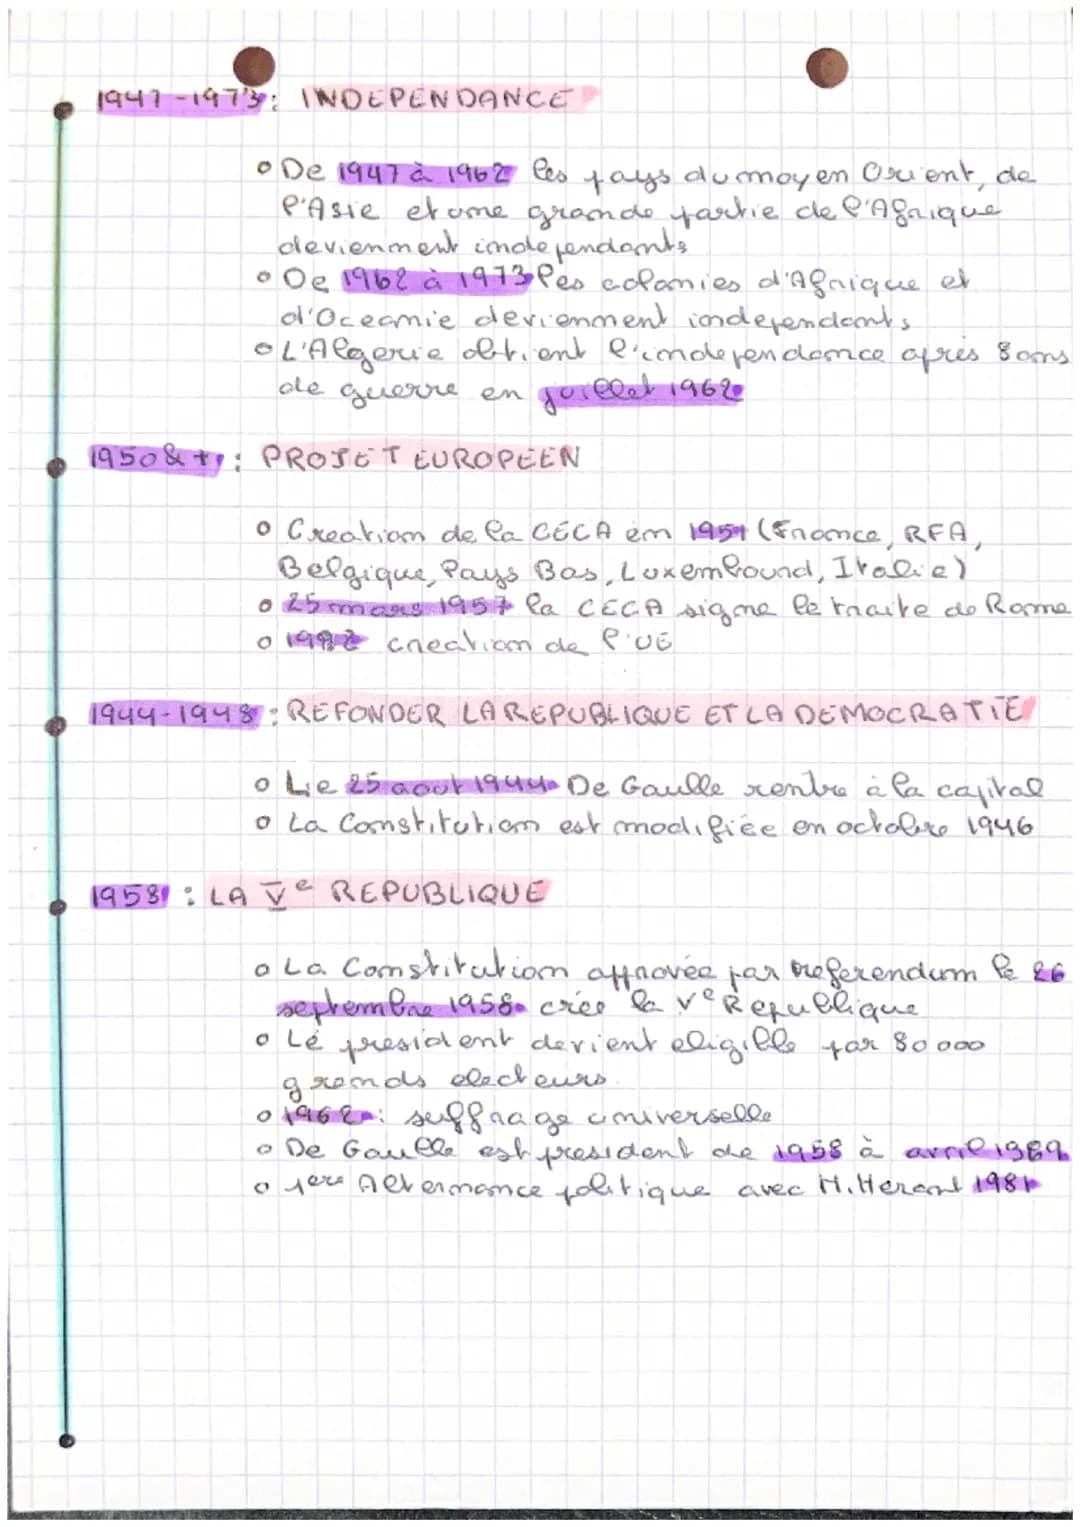 1947-1973: INDEPENDANCE
• De 1947 à 1962 les pays du moyen Orient, de
l'Asie et une grande partie de l'Afrique
deviennent independants
• De 1962 à 1973 les colonies d'Afrique et
d'Oceanie deviennent independants
• L'Algerie obtient l'independance après 8 ans
de guerre en juillet 1962
1950 & +: PROJET EUROPEEN
• Creation de la CECA en 1951 (France, RFA,
Belgique, Pays Bas, Luxembound, Italie)
• 25 mars 1957 la CECA signe le traite de Rome
• 1992 creation de l'UE
1944-1948: REFONDER LA REPUBLIQUE ET LA DEMOCRATIE
• Le 25 aout 1944 De Gaulle rentre à la capital
• La Constitution est modifiée en octobre 1946
1958: LA Ve REPUBLIQUE
• La Constitution approvée par referendum le
septembre 1958 crée la Ve Republique
• Le president devient eligible par 80 000
grands electeurs.
• 1962: suffrage universelle
• De Gaulle est president de 1958 à avril 1969
• 1ere Alternance politique avec 1981